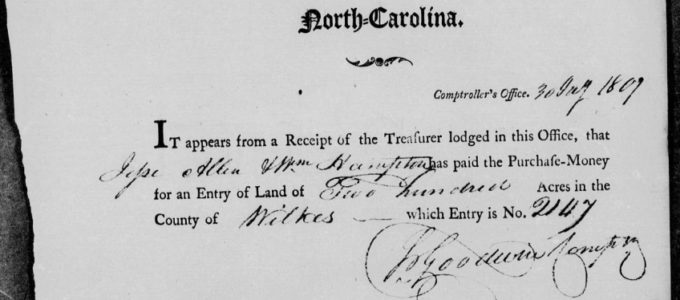 North-Carolina.
Comptroller's Office. 30 1809
IT appears from a Receipt of the Treasurer lodged in this Office, that
Jesse Allen & Wm Hampton has paid the Purchase-Money
for an Entry of Land of Two hundred Acres in the
County of Wilkes — which Entry is No. 2147
Goodwin Compt